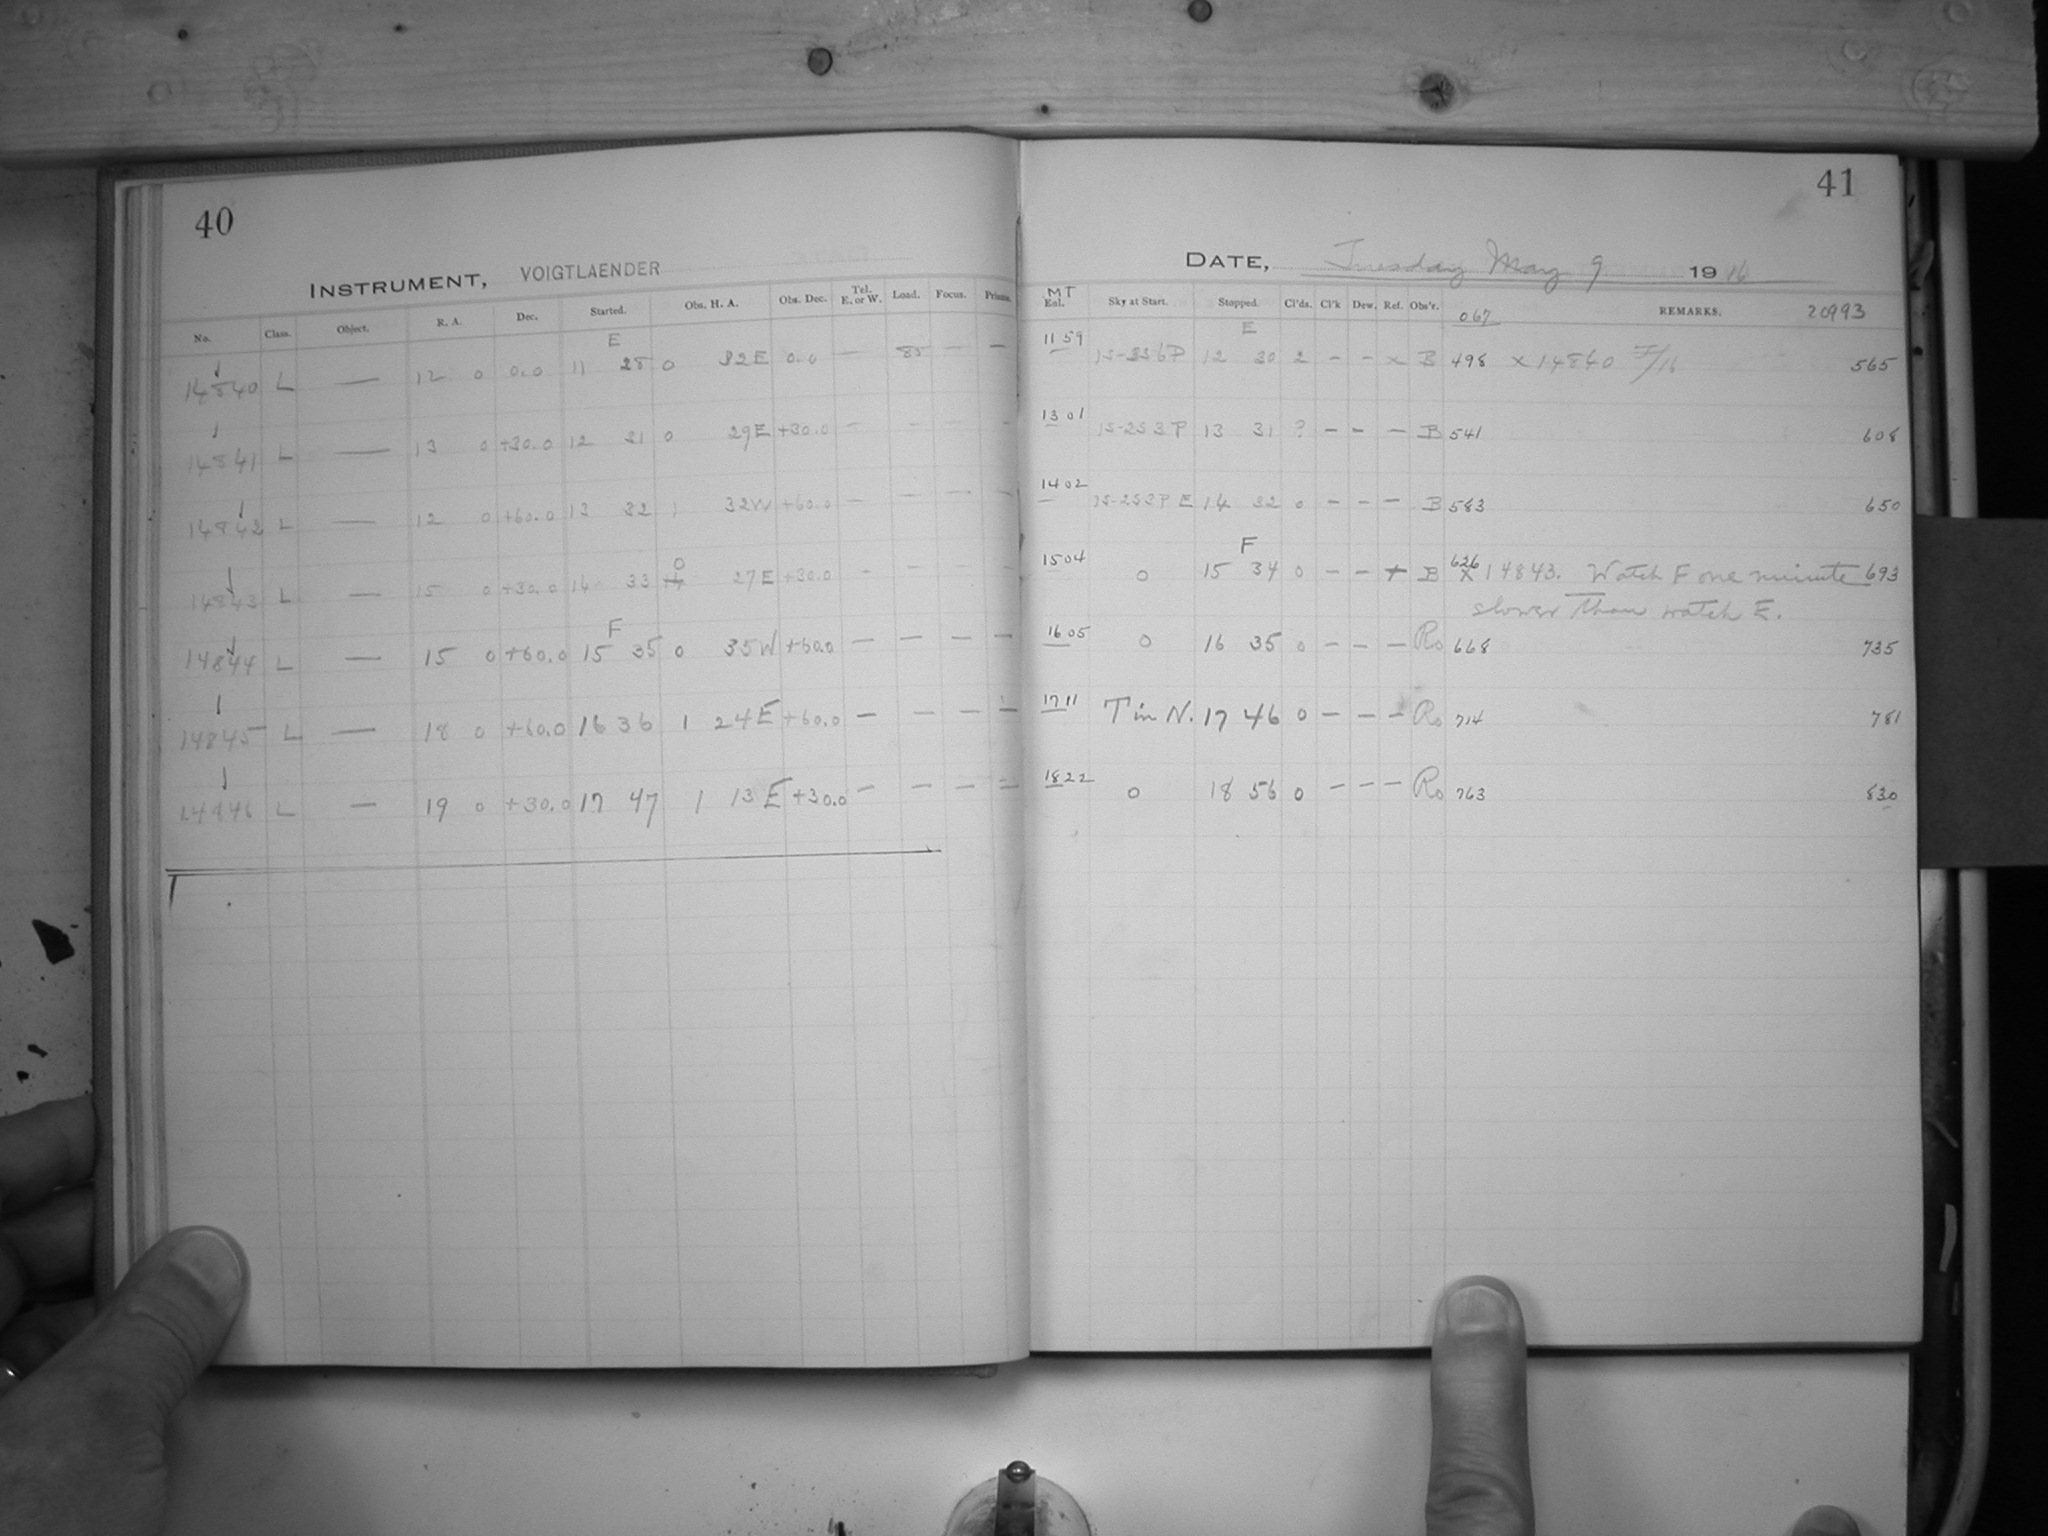 40
INSTRUMENT, VOIGTLAENDER
No. Class. Object. R. A. Dec. Started. Obs. H. A. Obs. Dec. Tel. E. or W. Load. Focus. Prisms.
E
14840 L — 12 0 0.0 11 28 0 32E 0.0 — 85 — —
14841 L — 13 0 +30.0 12 31 0 29E +30.0 — — — —
14842 L — 12 0 +60.0 13 32 1 32W +60.0 — — — —
14843 L — 15 0 +30.0 14 33 0 27E +30.0 — — — —
F
14844 L — 15 0 +60.0 15 35 0 35W +60.0 — — — —
14845 L — 18 0 +60.0 16 36 1 24E +60.0 — — — —
14846 L — 19 0 +30.0 17 47 1 13E +30.0 — — — —
41
DATE, Tuesday May 9 1916
MT
Eal. Sky at Start. Stopped. Cl'ds. Cl'k Dew. Ref. Obs'r. 067 REMARKS. 20993
E
11 59 12 30 2 — — x B 498 x 14840 F/16 565
13 01 15-253P 13 31 ? — — — B 541 608
14 02 15-253P E 14 32 0 — — — B 583 650
F
15 04 0 15 34 0 — — + B 626 x 14843. Watch F one minute 693
slower than watch E.
16 05 0 16 35 0 — — — Ro 668 735
17 11 T in N. 17 46 0 — — — Ro 714 781
18 22 0 18 56 0 — — — Ro 763 830